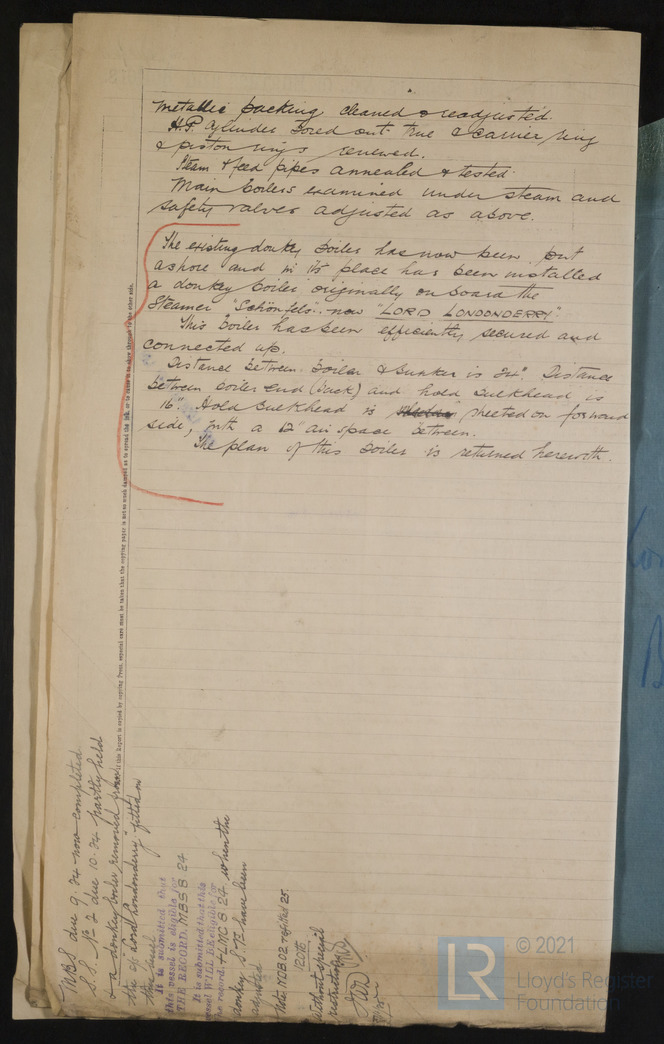 Metallic packing cleaned & readjusted.
H.P. Cylinder bored out true & carrier ring
& piston rings renewed.
Steam & feed pipes annealed & tested
Main boilers examined under steam and
safety valves adjusted as above.
The existing donkey boiler has now been put
ashore and in its place has been installed
a donkey boiler originally on board the
Steamer "Schönfels" now "LORD LONDONDERRY".
This boiler has been efficiently secured and
connected up.
Distance between boiler & bunker is 24". Distance
between boiler end (back) and hold bulkhead is
16". Hold bulkhead is sheeted on forward
side, with a 12" air space between.
The plan of this boiler is returned herewith.
if this Report is copied by copying Press, especial care must be taken that the copying paper is not so much damped as to spread the ink, or to cause it to show through to the other side.
MBS due 9.24 now completed
S.S. No 2 due 10.24 partly held
& a donkey boiler removed from
the s/s Lord Londonderry fitted on
this vessel
It is submitted that
this vessel is eligible for
THE RECORD. MBS 8 24
It is submitted that this
vessel WILL BE eligible for
the record. + LMC 8 24 when the
donkey S.V. have been
adjusted
Note NDB 02 refitted 25.
120 lb
Without special
© 2021
LR
Lloyd's Register
Foundation